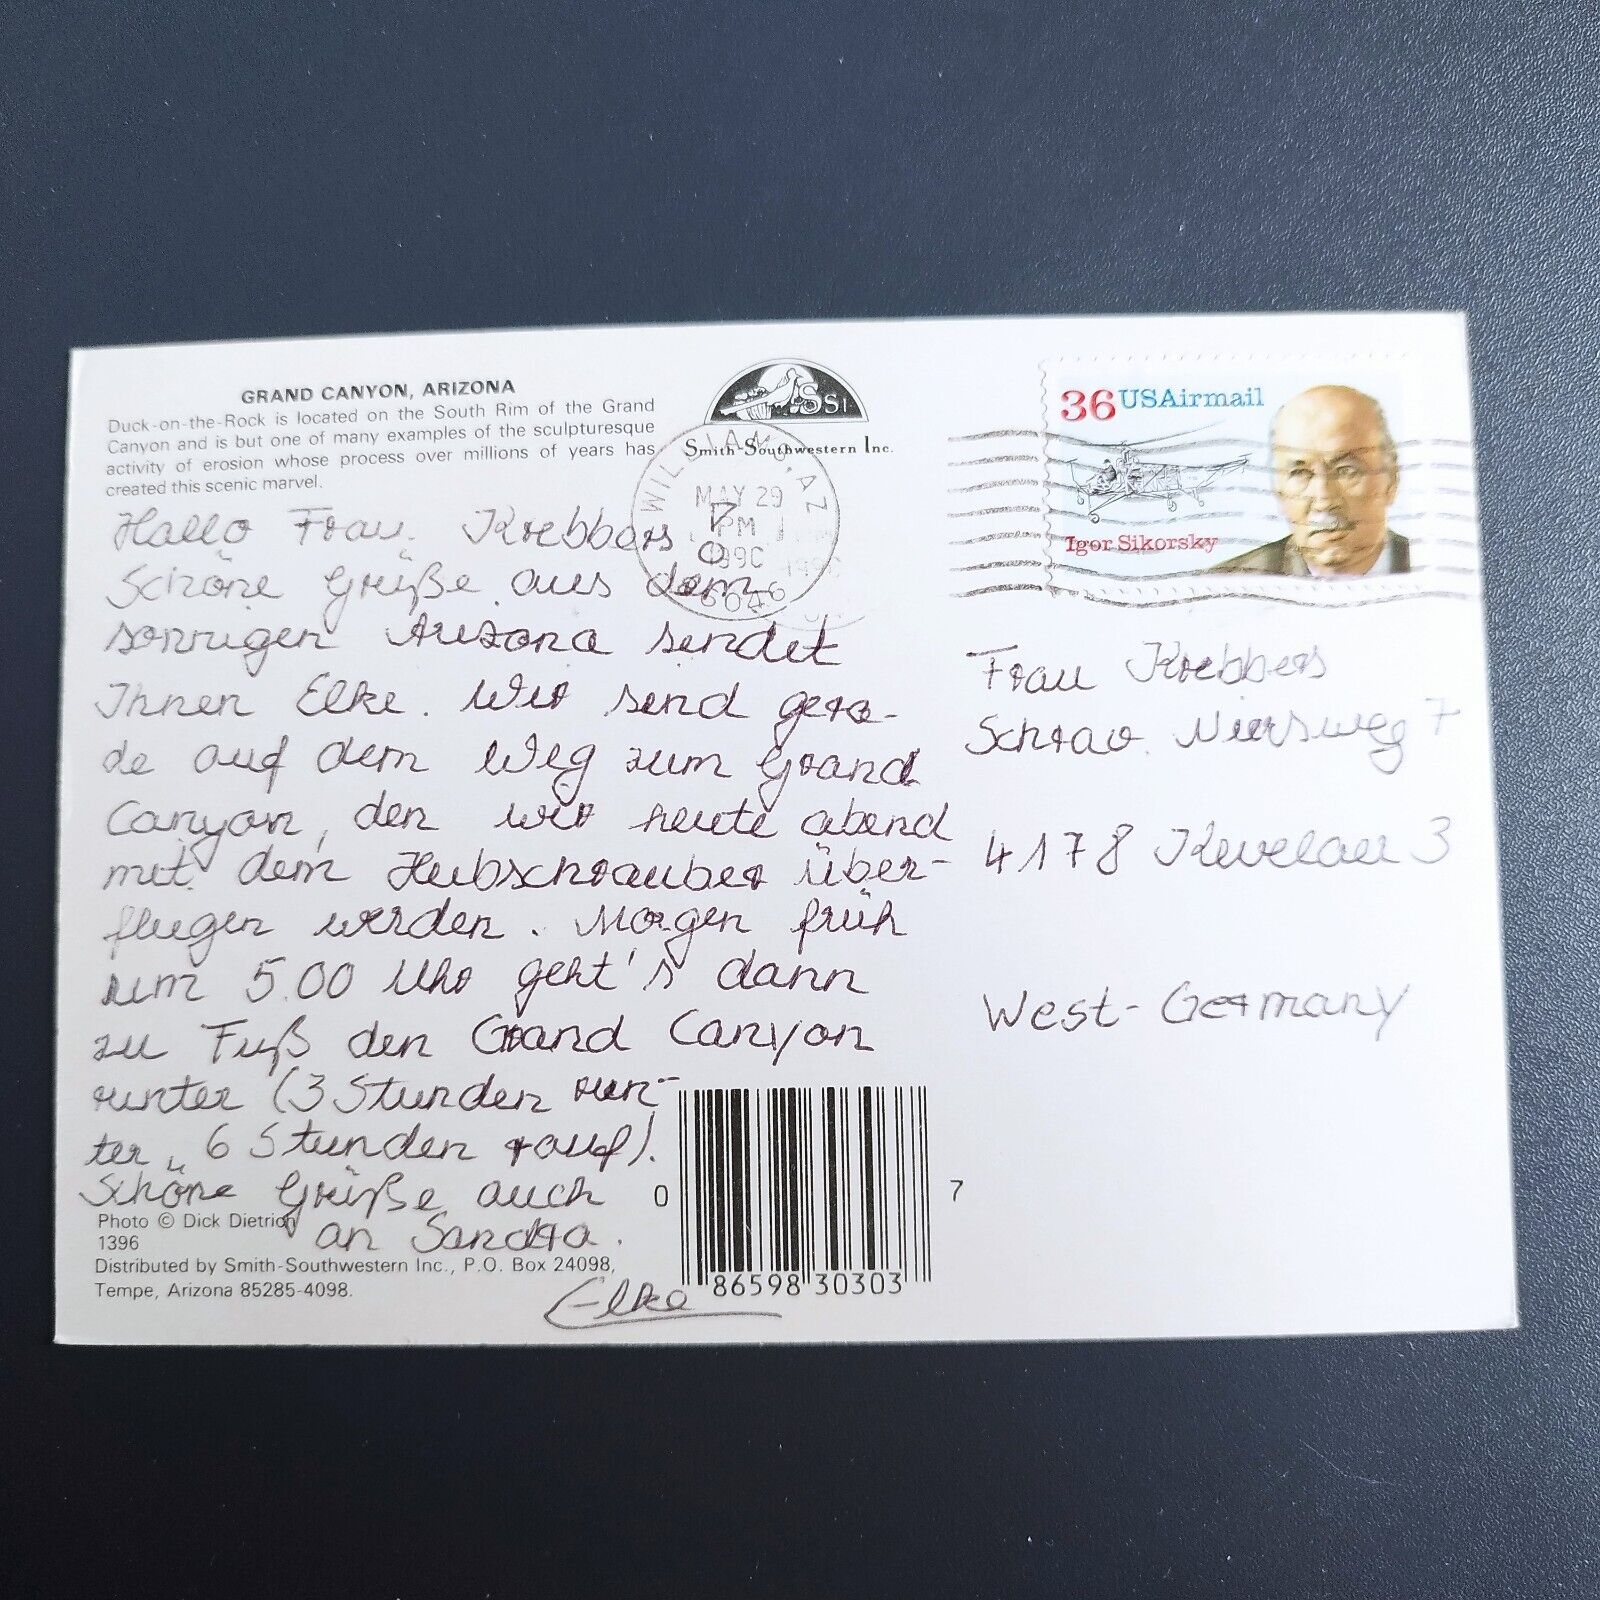 GRAND CANYON, ARIZONA
Duck-on-the-Rock is located on the South Rim of the Grand
Canyon and is but one of many examples of the sculpturesque
activity of erosion whose process over millions of years has
created this scenic marvel.
SSI
Smith-Southwestern Inc.
WILLIAMS, AZ
MAY 29
PM
1990
86046
36 USAirmail
Igor Sikorsky
Hallo Frau Krebbers!
Schöne Grüße aus dem
sonnigen Arizona sendet
Ihnen Elke. Wir sind gera-
de auf dem Weg zum Grand
Canyon, den wir heute abend
mit dem Hubschrauber über-
fliegen werden. Morgen früh
um 5.00 Uhr geht's dann
zu Fuß den Grand Canyon
runter (3 Stunden run-
ter, 6 Stunden rauf).
Schöne Grüße auch
an Sandra.
Elke
Frau Krebbers
Schrav. Niersweg 7
4178 Kevelaer 3
West-Germany
Photo © Dick Dietrich
1396
Distributed by Smith-Southwestern Inc., P.O. Box 24098,
Tempe, Arizona 85285-4098.
0 86598 30303 7